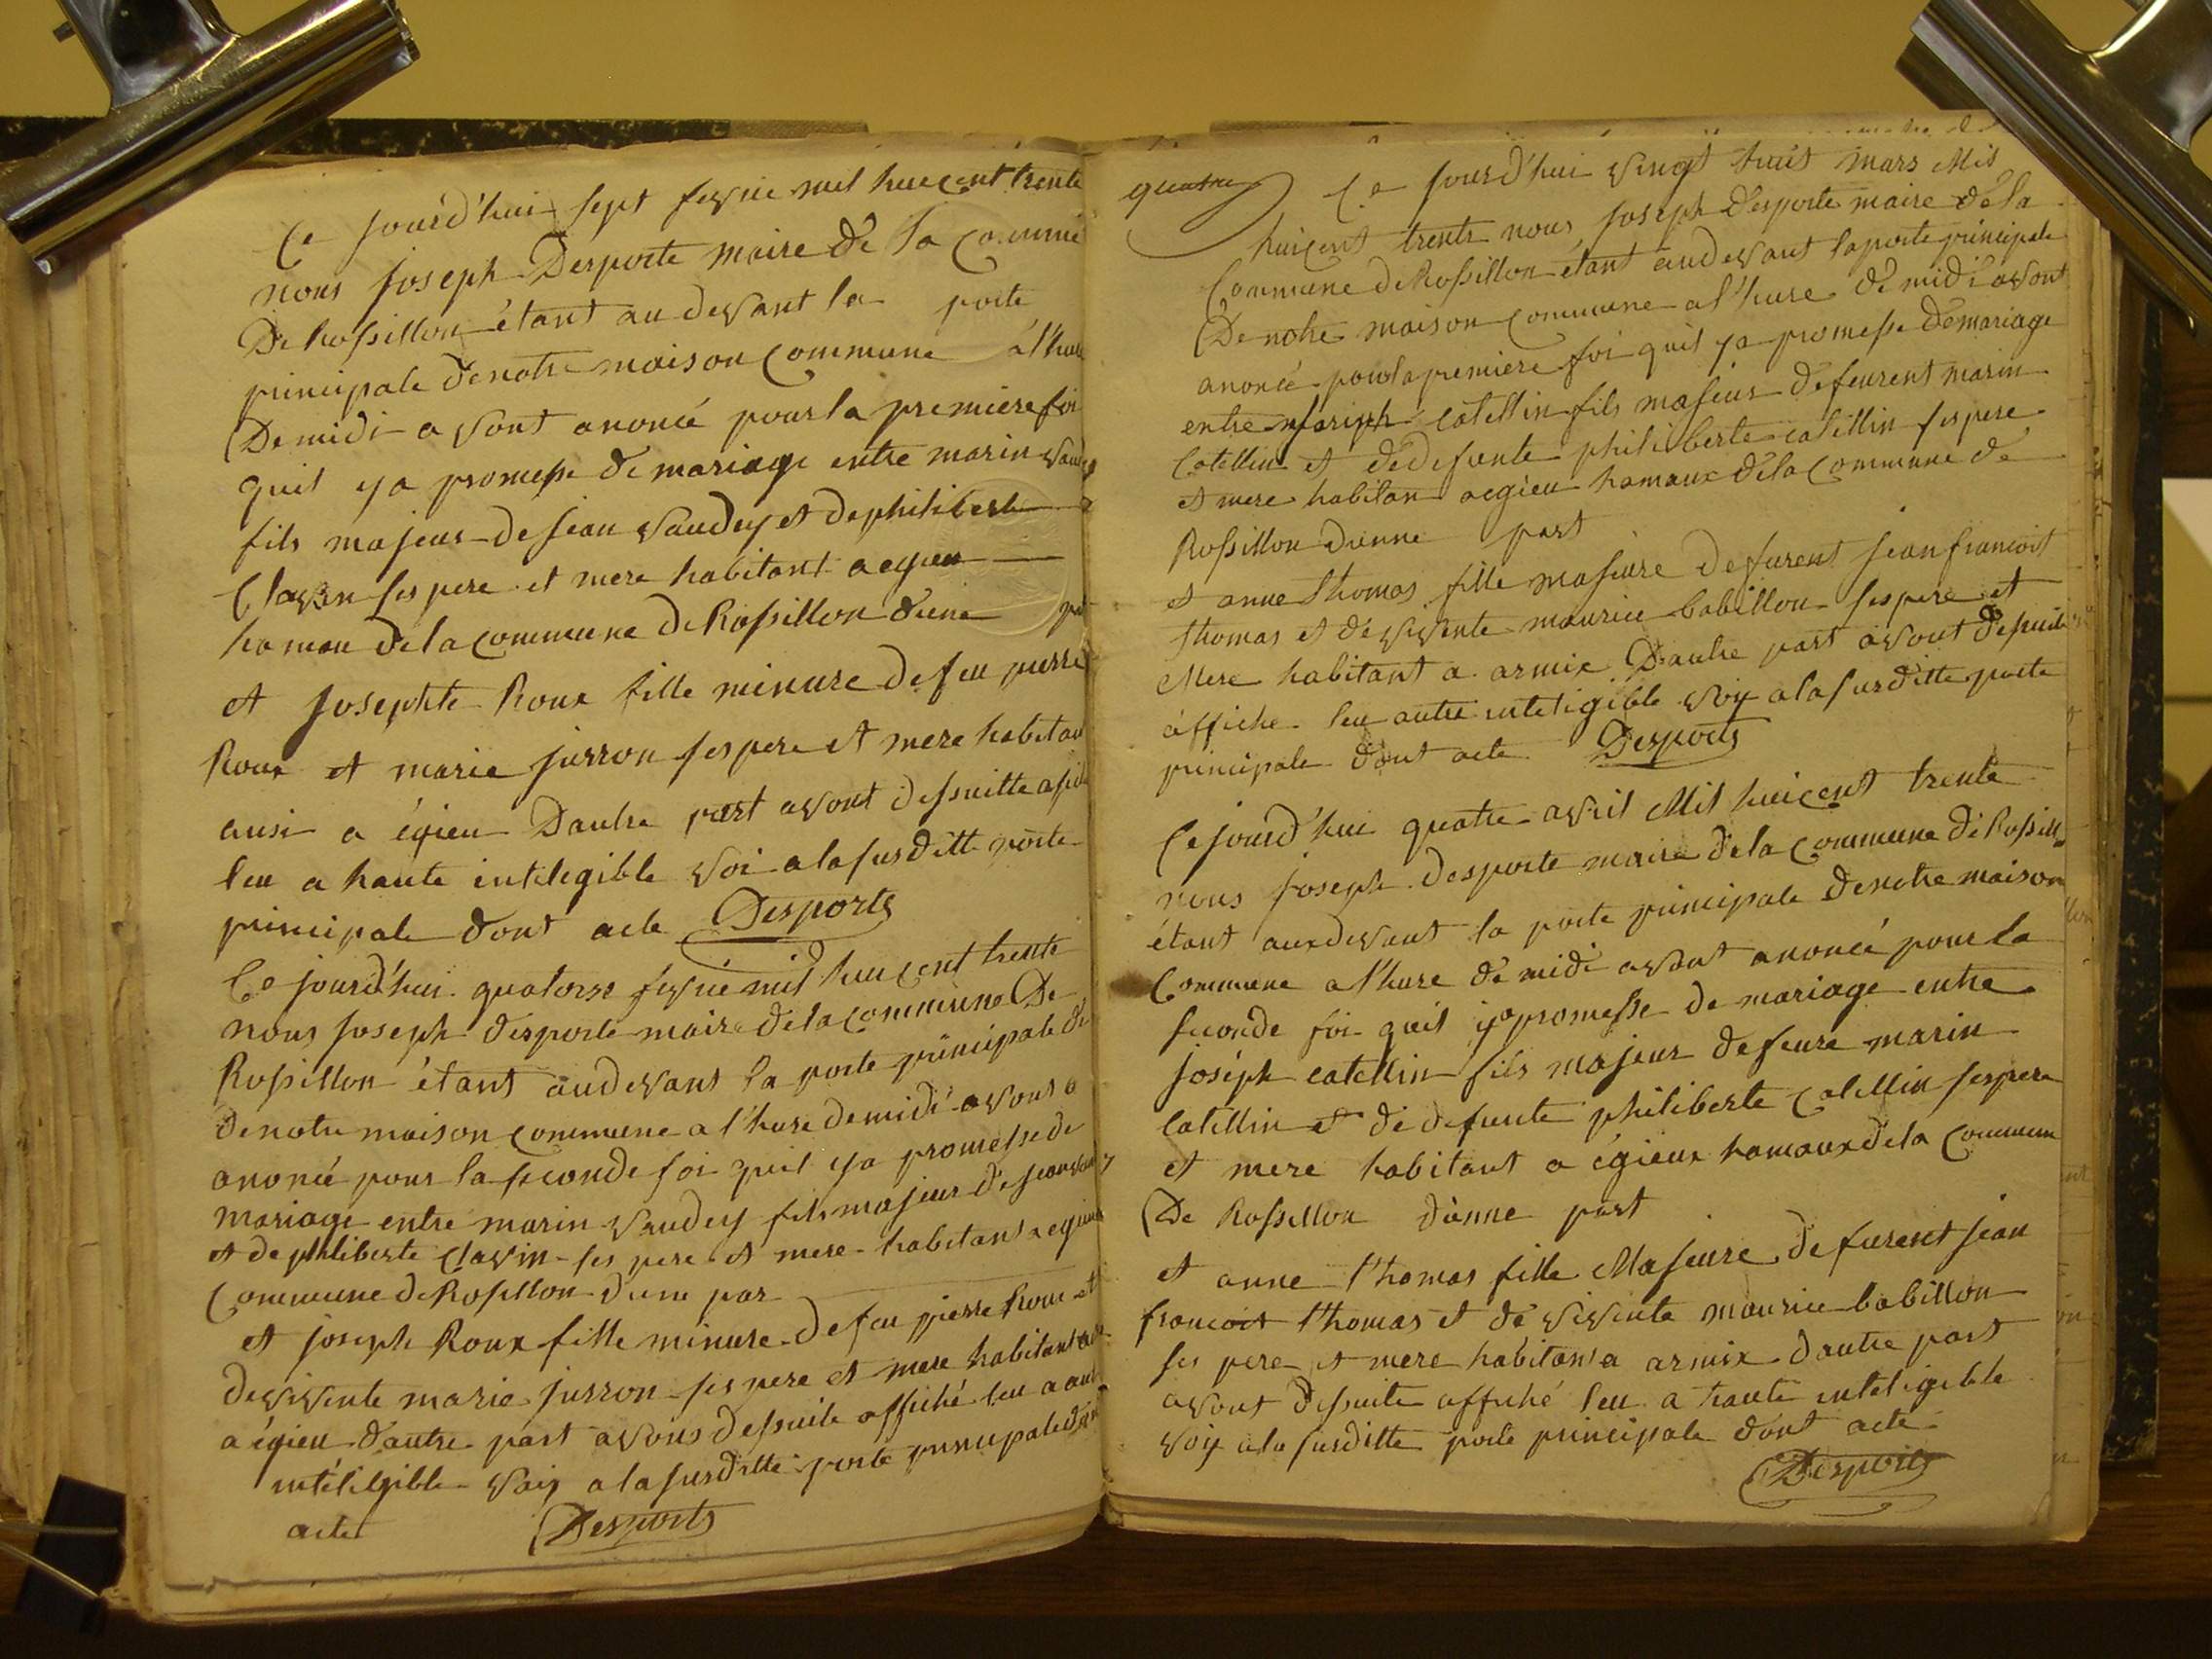 Ce jourd'hui sept fevrié mil huicent trente
nous joseph Desporte maire de la Commune
De Rossillon étant au devant la porte
principale de notre maison Commune à l'hure
De midi avont anoncé pour la premiere foi
quil ya promesse de mariage entre marin vaudey
fils majeur de jean vaudey et de philiberte
Clavin ses pere et mere habitant a egieu
hamau de la commune de Rossillon d'une par
et josephte Roux fille minure de feu pierre
Roux et marie jurron ses pere et mere habitan
ausi a égieu Dautre part avont dessuitte afiché
leu a haute intelegible voi a la susditte porte
principale dont acte Desporte
Ce jourd'hui quatorse fevrié mil huicent trente
nous joseph desporte maire de la commune De
Rossillon étant audevant la porte principale de
de notre maison commune a l'hure de midi avont
anoncé pour la seconde foi quil ya promesse de
mariage entre marin vaudey fils majeur de jean vaudey
et de philiberte clavin ses pere et mere habitant a egieu
Commune de Rossillon dune par
et joseph Roux fille minure de feu pierre Roux et
de vivente marie jurron ses pere et mere habitant
a égieu dautre part avons dessuite affiché leu a aute
intéligible voix a la susditte porte principale dont
acte Desporte
quatre Ce jourd'hui vingt huit mars Mil
huicent trente nous joseph desporte maire de la
Commune de Rossillon étant audevant la porte principale
De notre maison commune a l'hure de midi avont
anoncé pour la premiere foi quil ya promesse de mariage
entre joseph catellin fils majeur de feurent marin
Catellin et de defunte philiberte catillin ses pere
et mere habitan aegieu hamaux de la commune de
Rossillon dunne part
et anne thomas fille majeure de furent jean francoit
thomas et de vivente maurice babillon ses pere et
Mere habitant a armix Dautre part avont desuite
affiche leu autte inteligible voix a la surditte porte
principale dont acte Desporte
Ce jourd'hui quatre avril Mil huicent trente
nous joseph desporte maire de la commune de Rossillon
étant aux devant la porte principale de notre maison
Commune a l'hure de midi avont anoncé pour la
seconde foi quil ya promesse de mariage entre
joséph catellin fils majeur de feure marin
Catillin et de defunte philiberte Catellin ses pere
et mere habitant a égieux hamaux de la commune
De Rossillon dunne part
et anne thomas fille Majeure de furent jean
francoit thomas et de vivente maurice babillon
ses pere et mere habitant a armix dautre part
avont desuite affiché leu a haute inteligible
voix a la susditte porte principale dont acte
Desporte